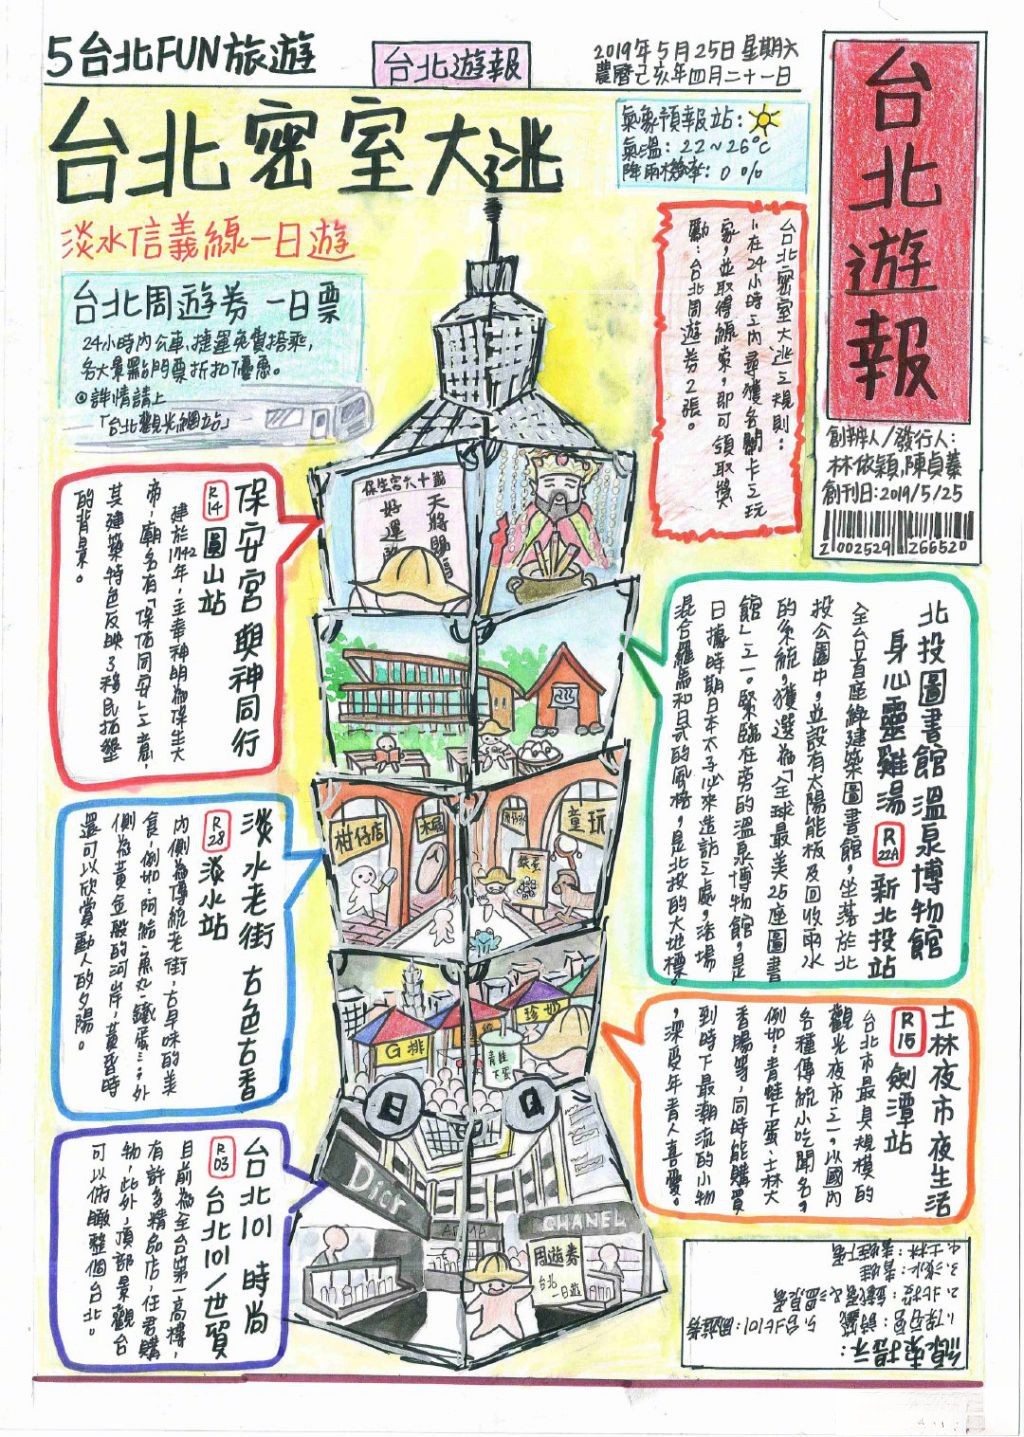 5台北FUN旅遊
台北遊報
2019年5月25日星期六
農曆己亥年四月二十一日
台北遊報
創辦人/發行人:
林依穎,陳貞蓁
創刊日:2019/5/25
2 002529 266520
台北密室大逃
氣象預報站:
氣溫:22~26°C
降雨機率:0%
淡水信義線一日遊
台北周遊券 一日票
24小時內公車、捷運免費搭乘,
各大景點門票折扣優惠。
◎詳情請上
「台北觀光網站」
台北密室大逃之規則:
1.在24小時之內尋獲各關卡之玩
家,並取得線索,即可領取獎
勵:台北周遊券2張。
保安宮 與神同行
R14 圓山站
建於1742年,主奉神明為保生大
帝,廟名有「保佑同安」之意,
其建築特色反映了移民拓墾
的背景。
北投圖書館溫泉博物館
身心靈雞湯 R22A 新北投站
全台首座綠建築圖書館,坐落於北
投公園中,並設有太陽能板及回收雨水
的系統,獲選為「全球最美25座圖書
館」之一。緊臨在旁的溫泉博物館,是
日據時期日本太子必來造訪之處,浴場
混合羅馬和日式的風格,是北投的大地標。
淡水老街 古色古香
R28 淡水站
內側為傳統老街,古早味的美
食,例如:阿給、魚丸、鐵蛋…,外
側為黃金般的河岸,黃昏時
還可以欣賞動人的夕陽。
士林夜市夜生活
R15 劍潭站
台北市最具規模的
觀光夜市之一,以國內
各種傳統小吃聞名,
例如:青蛙下蛋、士林大
香腸等,同時能購買
到時下最潮流的小物
,深受年青人喜愛。
台北101 時尚
R03 台北101/世貿
目前為全台第一高樓,
有許多精品店,任君購
物,此外,頂部景觀台
可以俯瞰整個台北。
保生宮六十籤
天將賜
好運
柑仔店
木屐
童玩
鐵蛋
G排
珍奶
青蛙
下蛋
Dior
CHANEL
周遊券
台北
一日遊
線索提示:
1.保安宮:詩籤
2.北投:
3.淡水:
4.士林:青蛙下蛋
5.台北101:周遊券